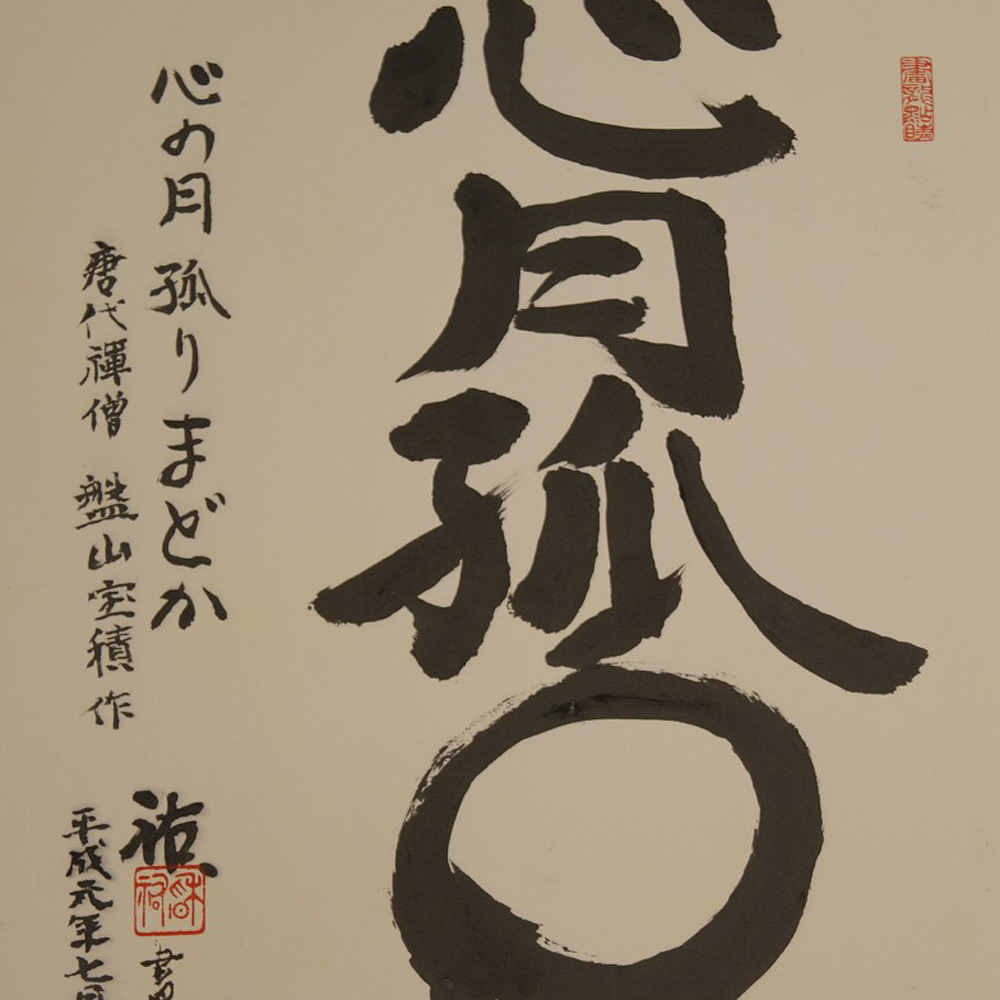 心月孤〇
心の月孤りまどか
唐代禪僧 盤山宝積作
祐
平成元年七月